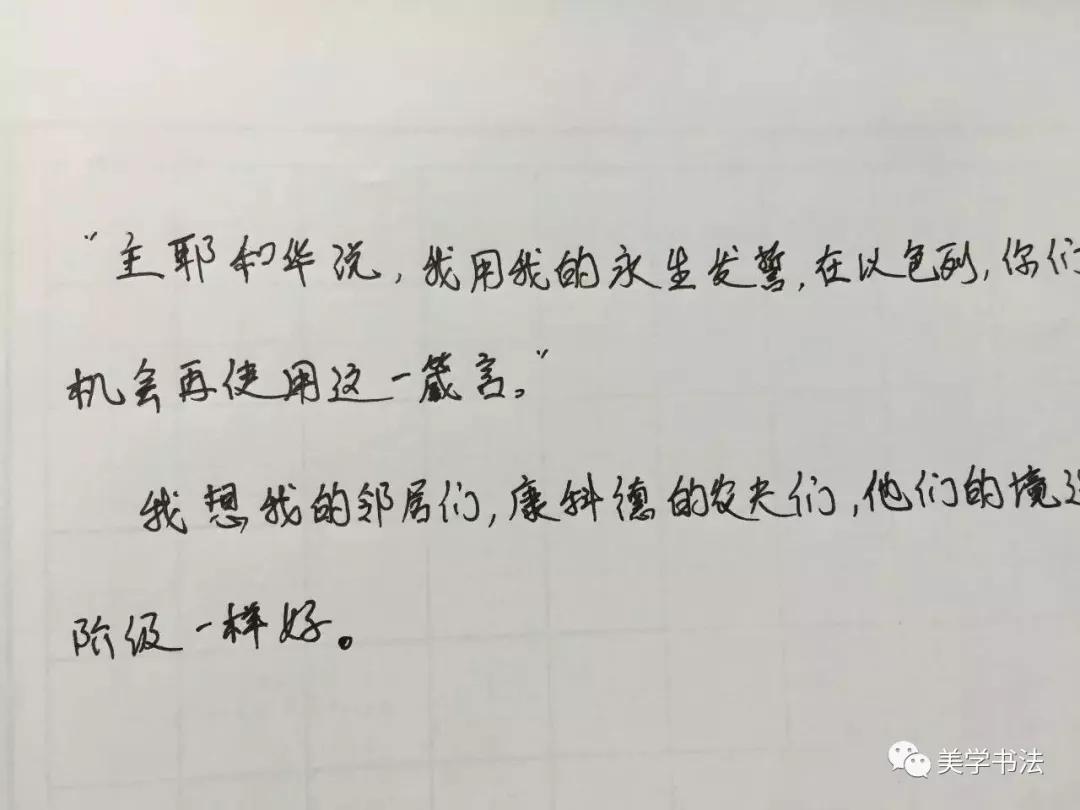 “主耶和华说，我用我的永生发誓，在以色列，你们
机会再使用这一箴言。”
我想我的邻居们，康科德的农夫们，他们的境
阶级一样好。
美学书法